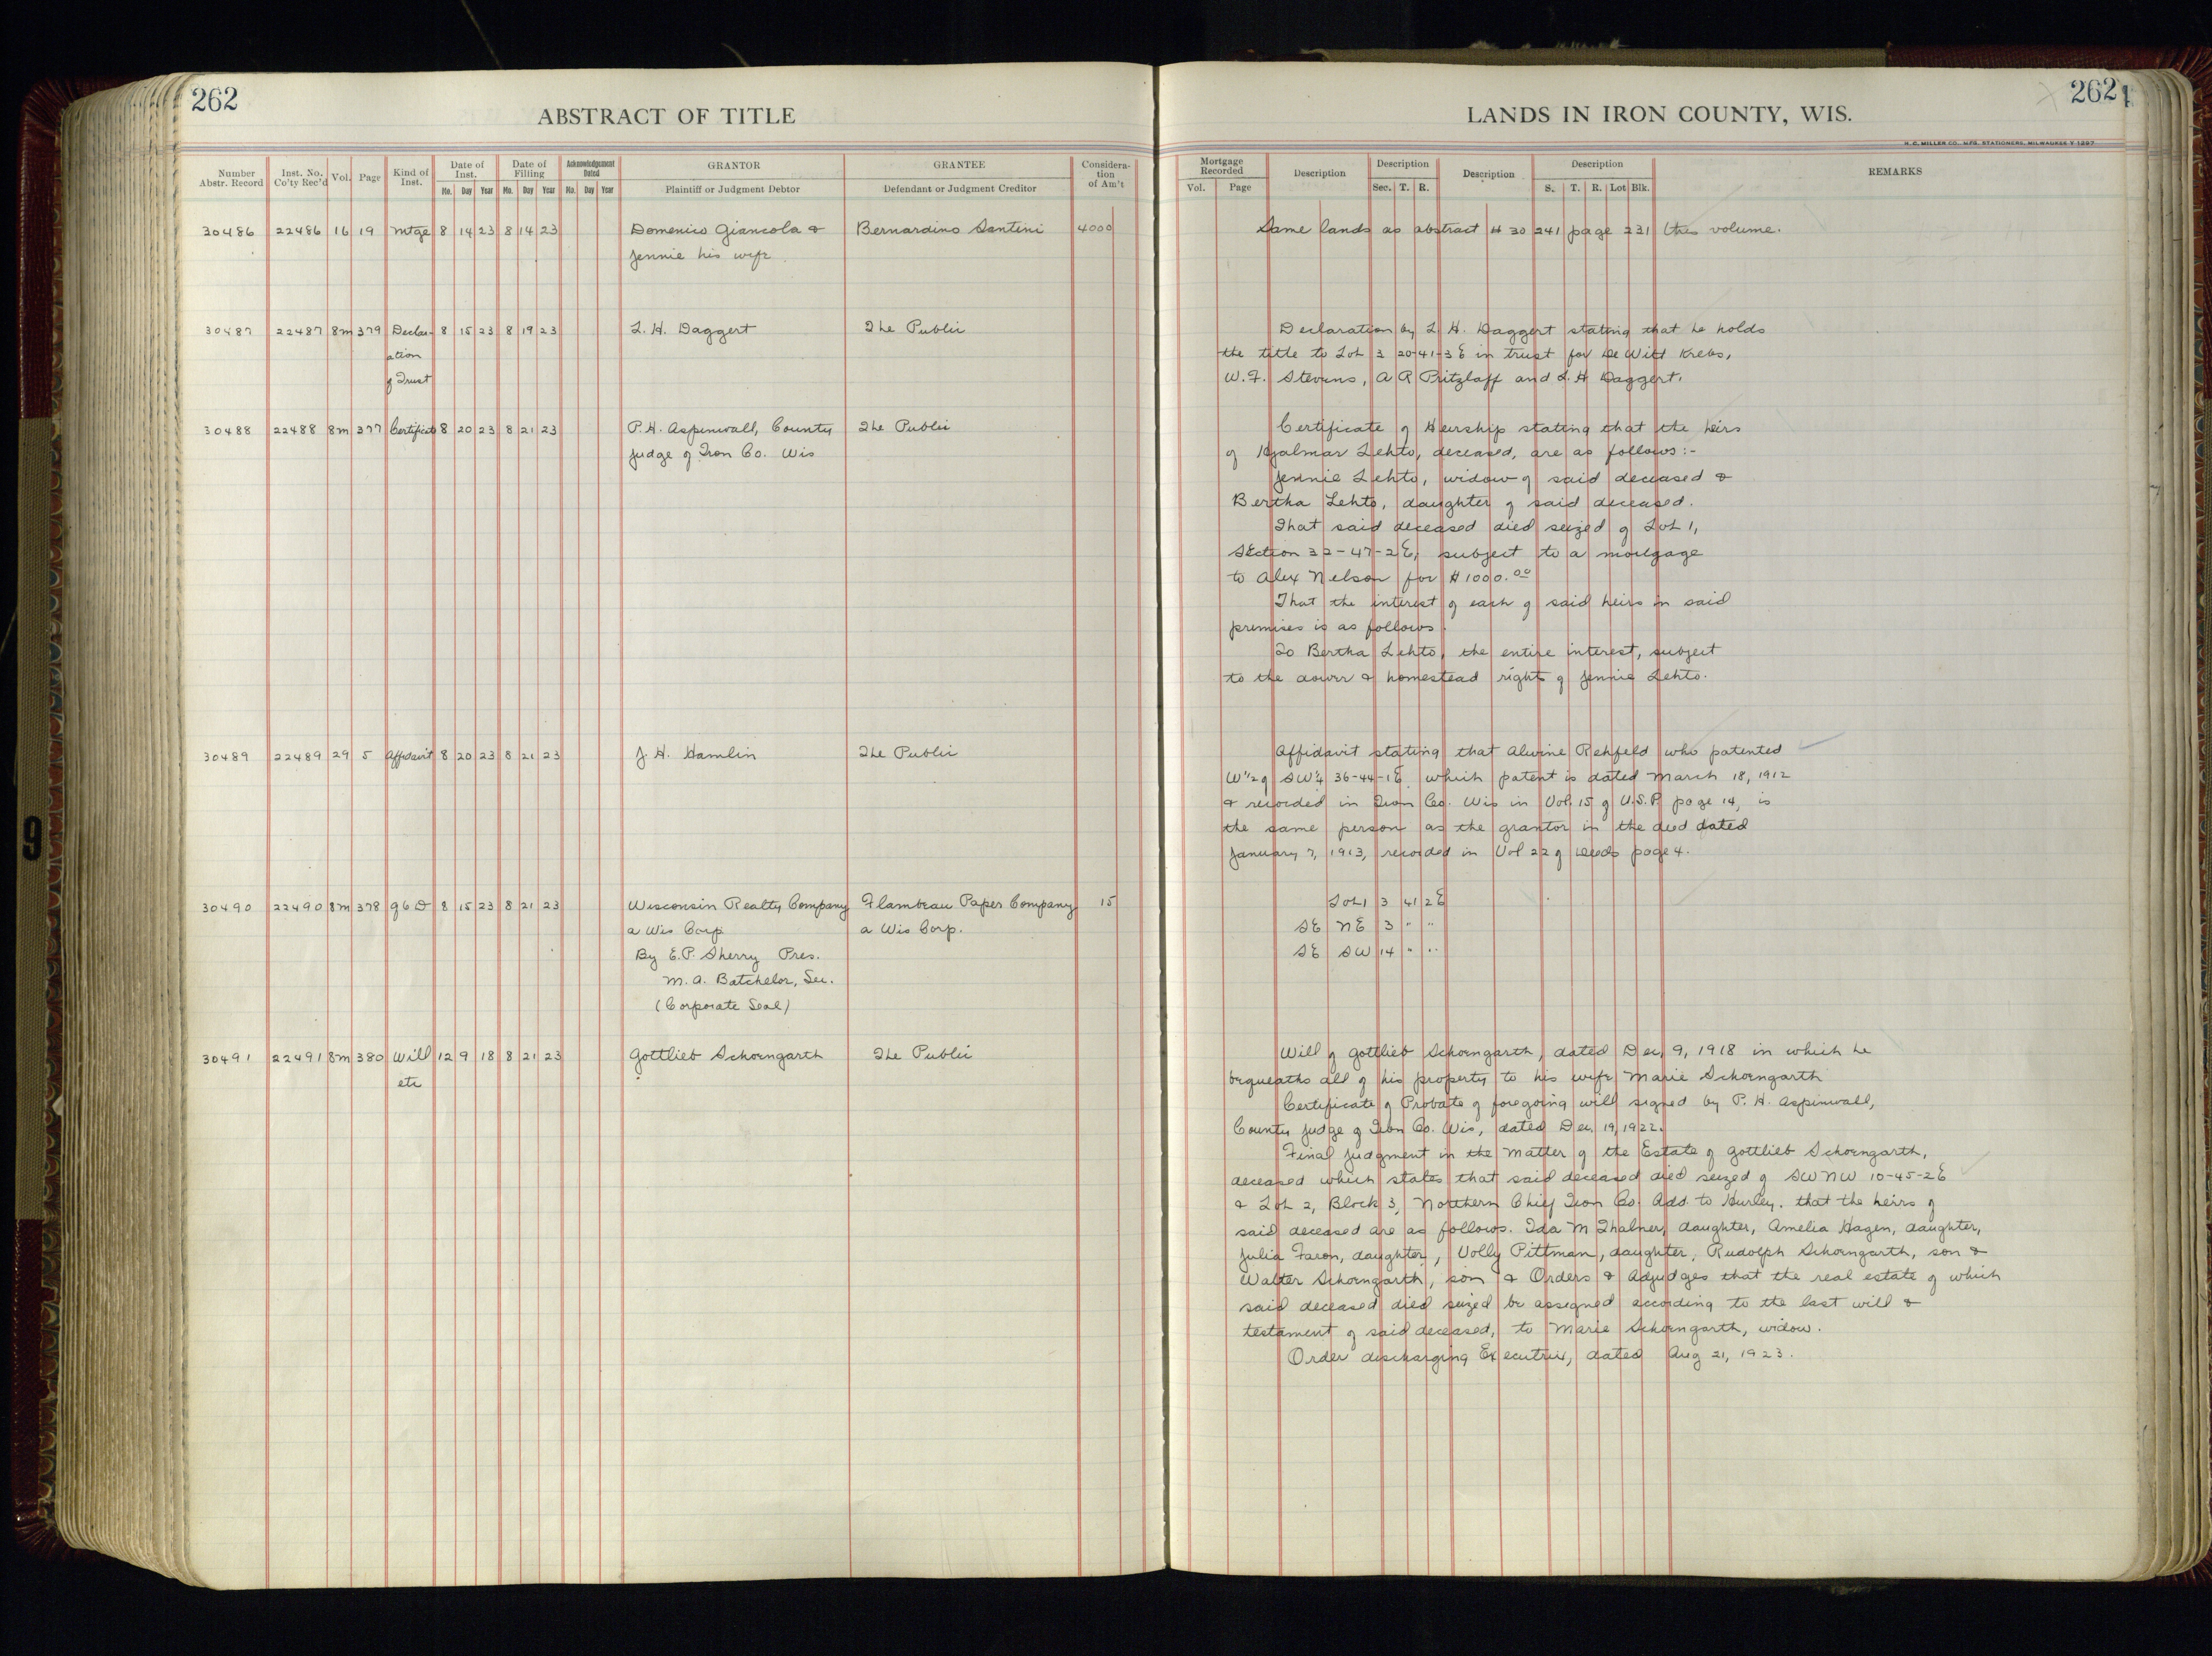 262
ABSTRACT OF TITLE
Number Abstr. Record | Inst. No. Co'ty Rec'd | Vol. | Page | Kind of Inst. | Date of Inst. Mo. Day Year | Date of Filling Mo. Day Year | Acknowledgement Dated Mo. Day Year | GRANTOR Plaintiff or Judgment Debtor | GRANTEE Defendant or Judgment Creditor | Consideration of Am't
30486 22486 16 19 Mtge 8 14 23 8 14 23 Domenico Giancola & Bernardino Santini 4000
Jennie his wife
30487 22487 8m 379 Declar- 8 15 23 8 19 23 L. H. Daggert The Public
ation
of Trust
30488 22488 8m 377 Certificate 8 20 23 8 21 23 P.H. Aspinwall, County The Public
Judge of Iron Co. Wis
30489 22489 29 5 Affidavit 8 20 23 8 21 23 J. H. Hamlin The Public
30490 22490 8m 378 Q6D 8 15 23 8 21 23 Wisconsin Realty Company Flambeau Paper Company 15
a Wis Corp a Wis Corp.
By E.P. Sherry Pres.
M. A. Batchelor, Sec.
(Corporate Seal)
30491 22491 8m 380 Will 12 9 18 8 21 23 Gottlieb Schoengarth The Public
etc
262
LANDS IN IRON COUNTY, WIS.
H. C. MILLER CO., MFG. STATIONERS, MILWAUKEE Y-1297
Mortgage Recorded Vol. Page | Description | Description Sec. T. R. | Description | Description S. T. R. Lot Blk. | REMARKS
Same lands as abstract # 30 241 page 231 this volume.
Declaration by L. H. Daggert stating that he holds
the title to Lot 3 20-41-3E in trust for De Witt Krebs,
W.F. Stevens, A R Pritzlaff and L. H Daggert.
Certificate of Heirship stating that the heirs
of Hjalmar Lehto, deceased, are as follows:-
Jennie Lehto, widow of said deceased &
Bertha Lehto, daughter of said deceased.
That said deceased died seized of Lot 1,
Section 32-47-2E, subject to a mortgage
to Alex Nelson for $1000.00
That the interest of each of said heirs in said
premises is as follows.
To Bertha Lehto, the entire interest, subject
to the dower & homestead right of Jennie Lehto.
Affidavit stating that Alwine Rehfeld who patented
W 1/2 of SW 1/4 36-44-1E which patent is dated March 18, 1912
& recorded in Iron Co. Wis in Vol. 15 of U.S.P. page 14, is
the same person as the grantor in the deed dated
January 7, 1913, recorded in Vol 22 of Deeds page 4.
Lot 1 3 41 2E
SE NE 3 " "
SE SW 14 " "
Will of Gottlieb Schoengarth, dated Dec, 9, 1918 in which he
bequeaths all of his property to his wife Marie Schoengarth
Certificate of Probate of foregoing will signed by P. H. Aspinwall,
County Judge of Iron Co. Wis, dated Dec, 19, 1922.
Final Judgment in the Matter of the Estate of Gottlieb Schoengarth,
deceased which states that said deceased died seized of SW NW 10-45-2E
& Lot 2, Block 3, Northern Chief Iron Co. Add. to Hurley. that the heirs of
said deceased are as follows. Ida M Thalner, daughter, Amelia Hagen, daughter,
Julia daughter, Volly Pittman, daughter, Rudolph Schoengarth, son &
Walter Schoengarth, son & Orders & Adjudges that the real estate of which
said deceased died seized be assigned according to the last will &
testament of said deceased, to Marie Schoengarth, widow.
Order discharging Executrix, dated Aug 21, 1923.
9